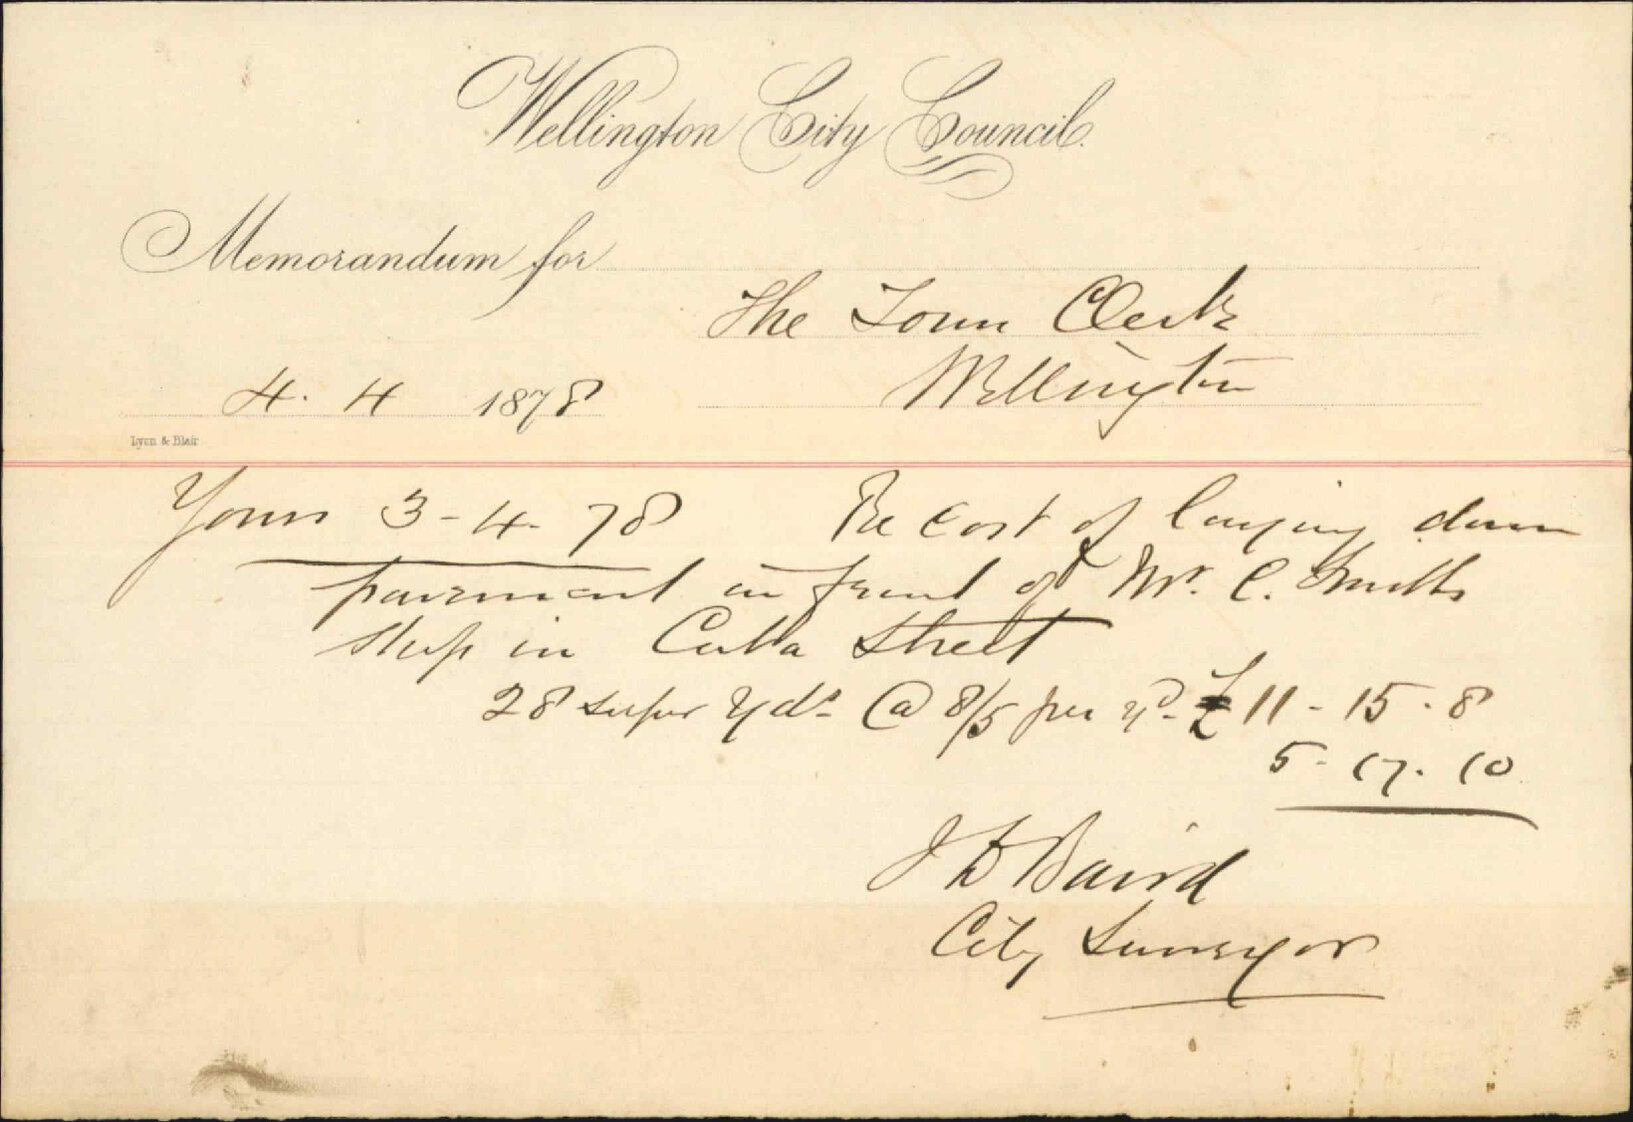 Wellington City Council.
Memorandum for
The Town Clerk
Wellington
4. 4 1878
Lyon & Blair
Yours 3-4-78 Re cost of laying down
pavement in front of Mr. C. Smiths
shop in Cuba Street
28 super Yds @ 8/5 per yd. £11-15.8
5-17.10
J D Baird
City Surveyor